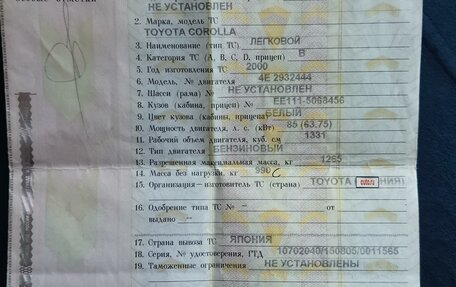 НЕ УСТАНОВЛЕН
2. Марка, модель ТС
TOYOTA COROLLA
3. Наименование (тип ТС) ЛЕГКОВОЙ
4. Категория ТС (A, B, C, D, прицеп) B
5. Год изготовления ТС 2000
6. Модель, № двигателя 4E 2932444
7. Шасси (рама) № НЕ УСТАНОВЛЕН
8. Кузов (кабина, прицеп) № EE111-5068456
9. Цвет кузова (кабины, прицепа) БЕЛЫЙ
10. Мощность двигателя, л. с. (кВт) 85 (63.75)
11. Рабочий объем двигателя, куб. см 1331
12. Тип двигателя БЕНЗИНОВЫЙ
13. Разрешенная максимальная масса, кг 1265
14. Масса без нагрузки, кг 990
15. Организация—изготовитель ТС (страна) TOYOTA
auto.ru
16. Одобрение типа ТС № — от
выдано —
17. Страна вывоза ТС ЯПОНИЯ
18. Серия, № удостоверения, ГТД 10702040/150805/0011565
19. Таможенные ограничения НЕ УСТАНОВЛЕНЫ